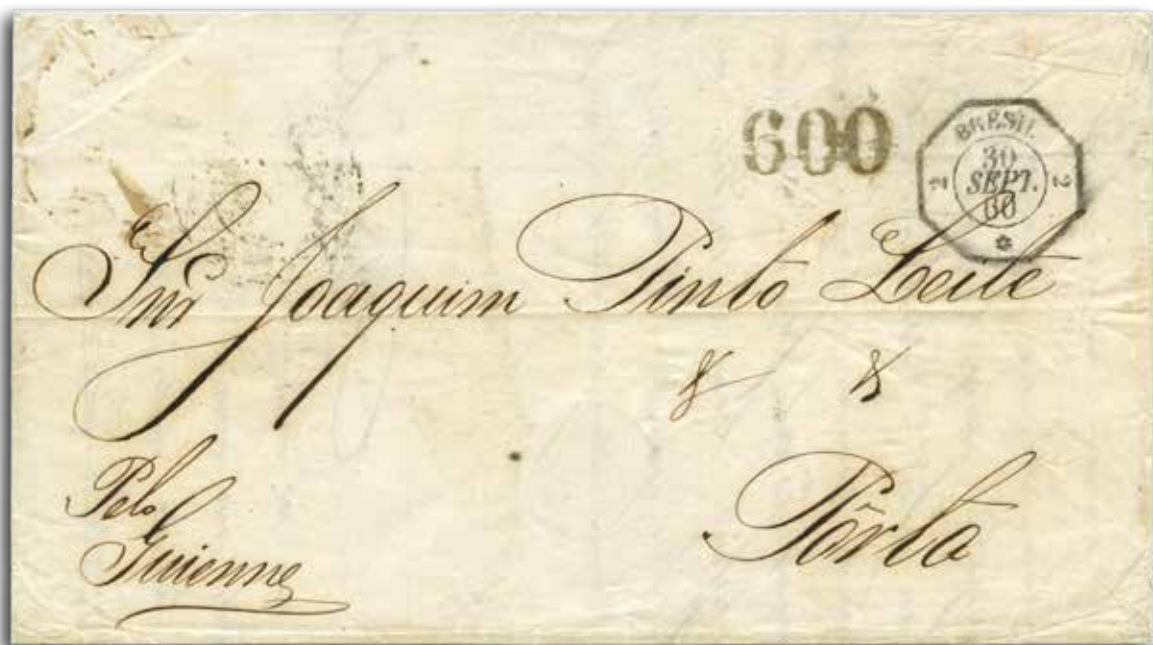 600
BRESIL
2 30 2
SEPT.
60
Snr Joaquim Pinto Leite
& &
Pelo
Guienne
Pôrto